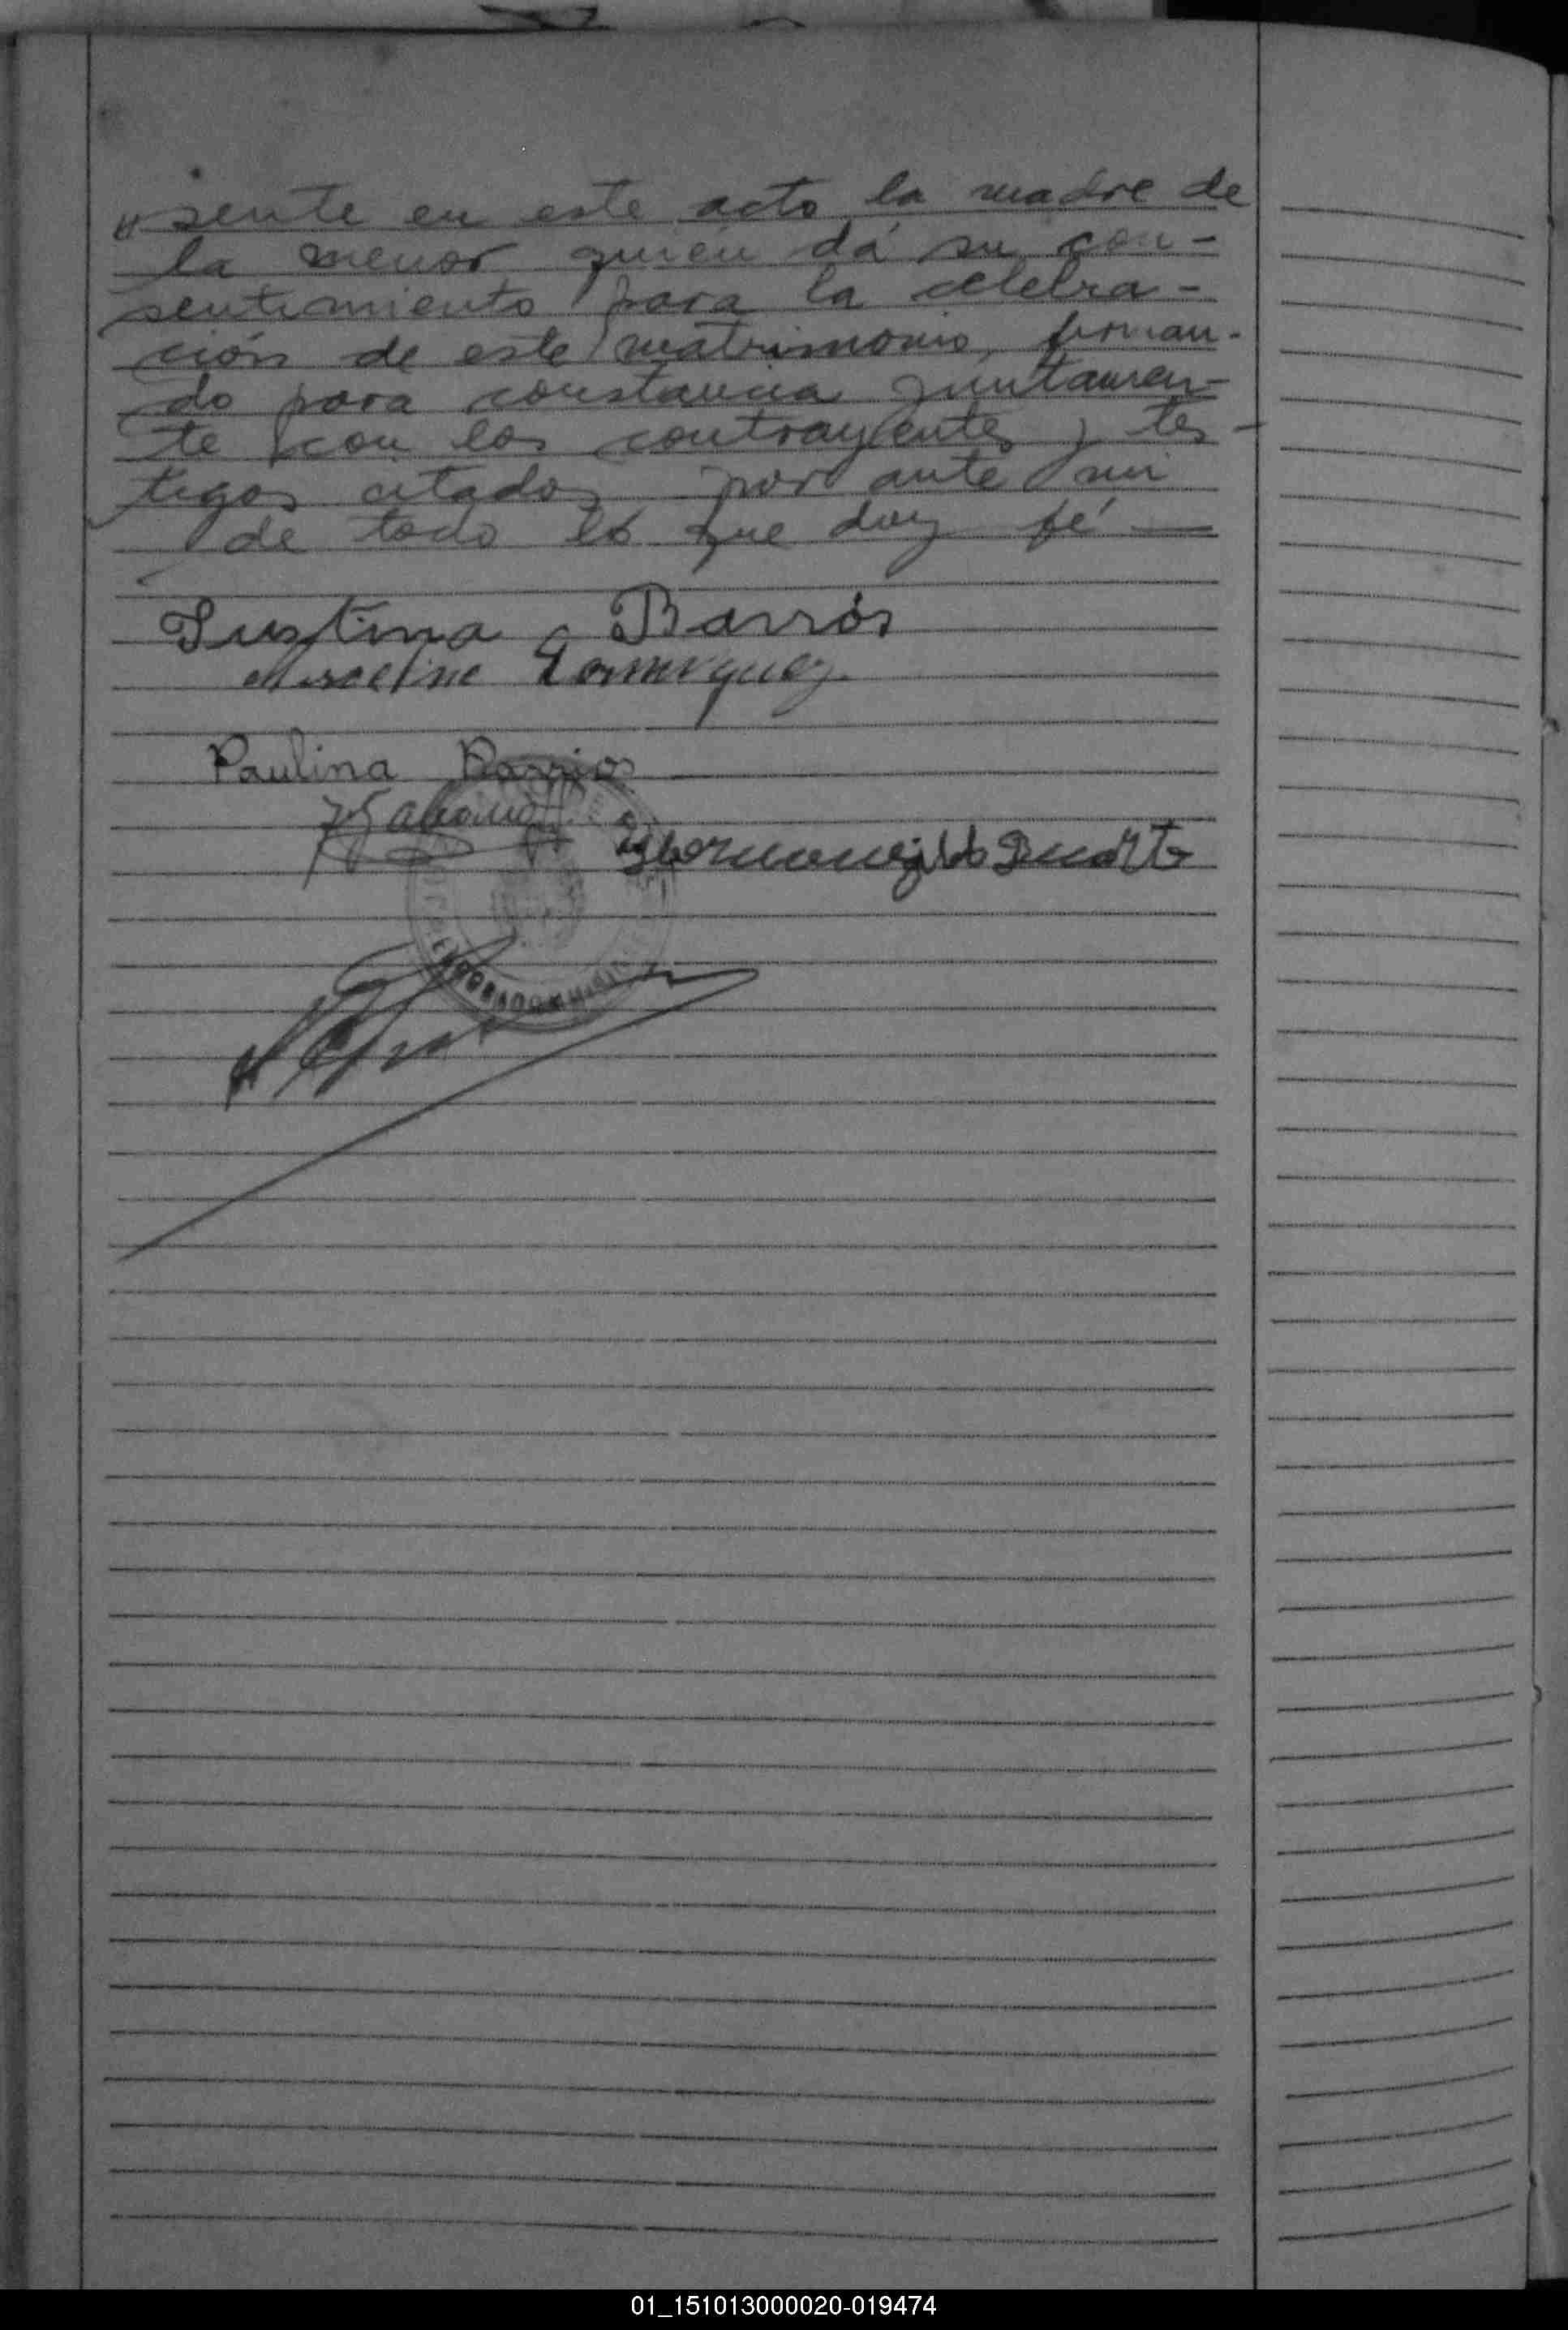 "sente en este acto la madre de
la menor quién dá su con-
sentimiento para la celebra-
ción de este matrimonio, firman-
do para constancia juntamen-
te con los contrayentes y tes-
tigos citados por ante mi
de todo lo que doy fé —
Justina Barrios
Marcelino Dominguez
Paulina Barrios
Hermenegildo Duarte
01_151013000020-019474